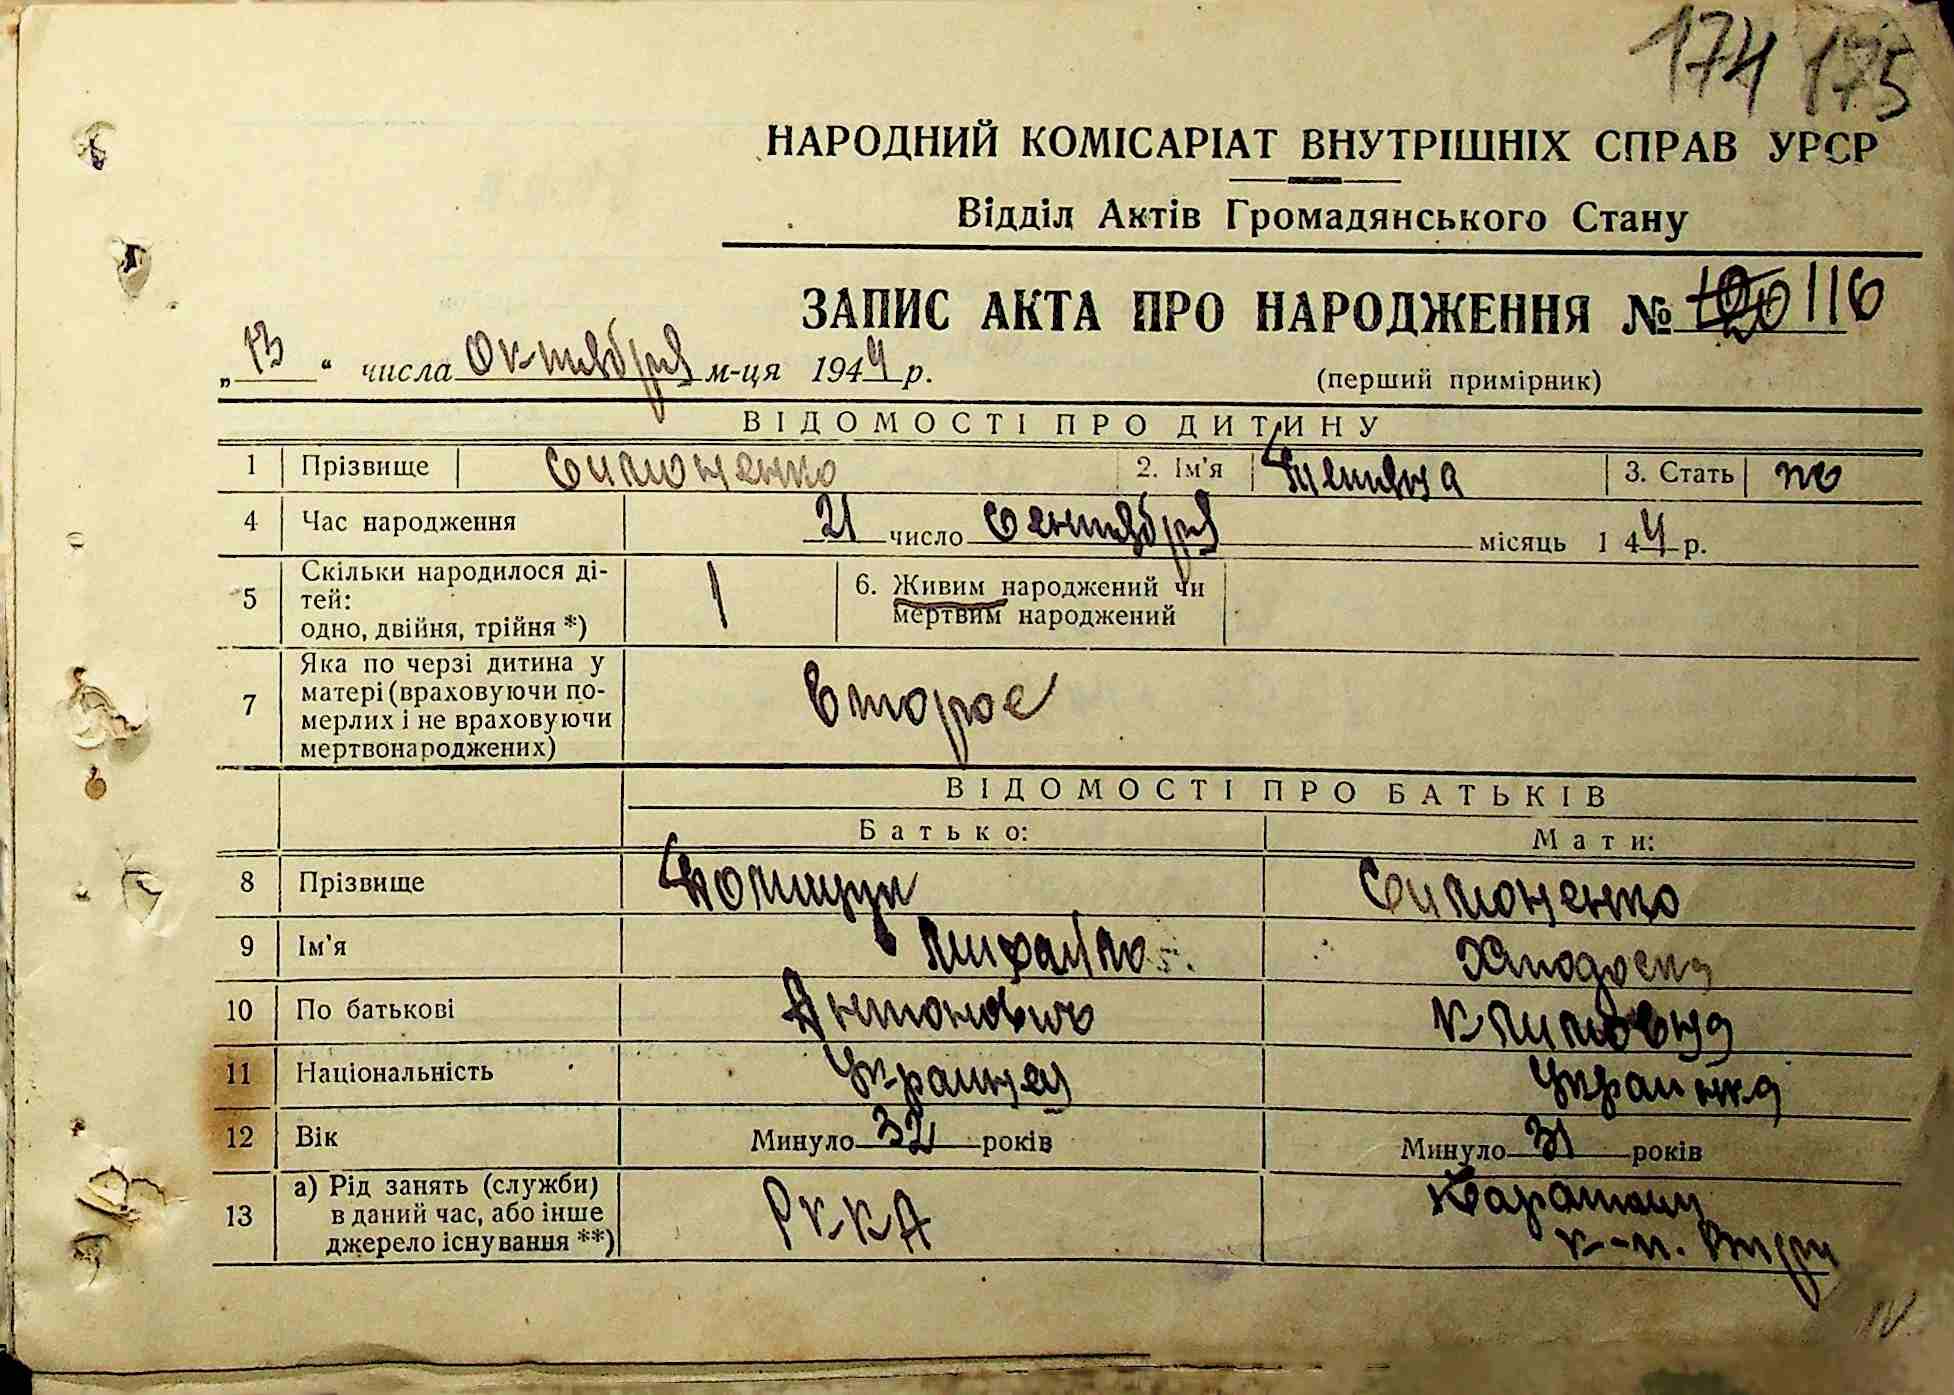 174 175
НАРОДНИЙ КОМІСАРІАТ ВНУТРІШНІХ СПРАВ УРСР
Відділ Актів Громадянського Стану
ЗАПИС АКТА ПРО НАРОДЖЕННЯ № 116
„13“ числа Октября м-ця 1944 р. (перший примірник)
ВІДОМОСТІ ПРО ДИТИНУ
1 Прізвище Симоненко 2. Ім'я 3. Стать
4 Час народження 21 число Сентября місяць 1944 р.
5 Скільки народилося ді-
тей:
одно, двійня, трійня *) 1 6. Живим народжений чи
мертвим народжений
7 Яка по черзі дитина у
матері (враховуючи по-
мерлих і не враховуючи
мертвонароджених) второе
ВІДОМОСТІ ПРО БАТЬКІВ
Батько: Мати:
8 Прізвище Симоненко
9 Ім'я
10 По батькові Антонович Климовна
11 Національність Украинец Украинка
12 Вік Минуло 32 років Минуло 31 років
13 а) Рід занять (службы)
в даний час, або інше
джерело існування **) РККА